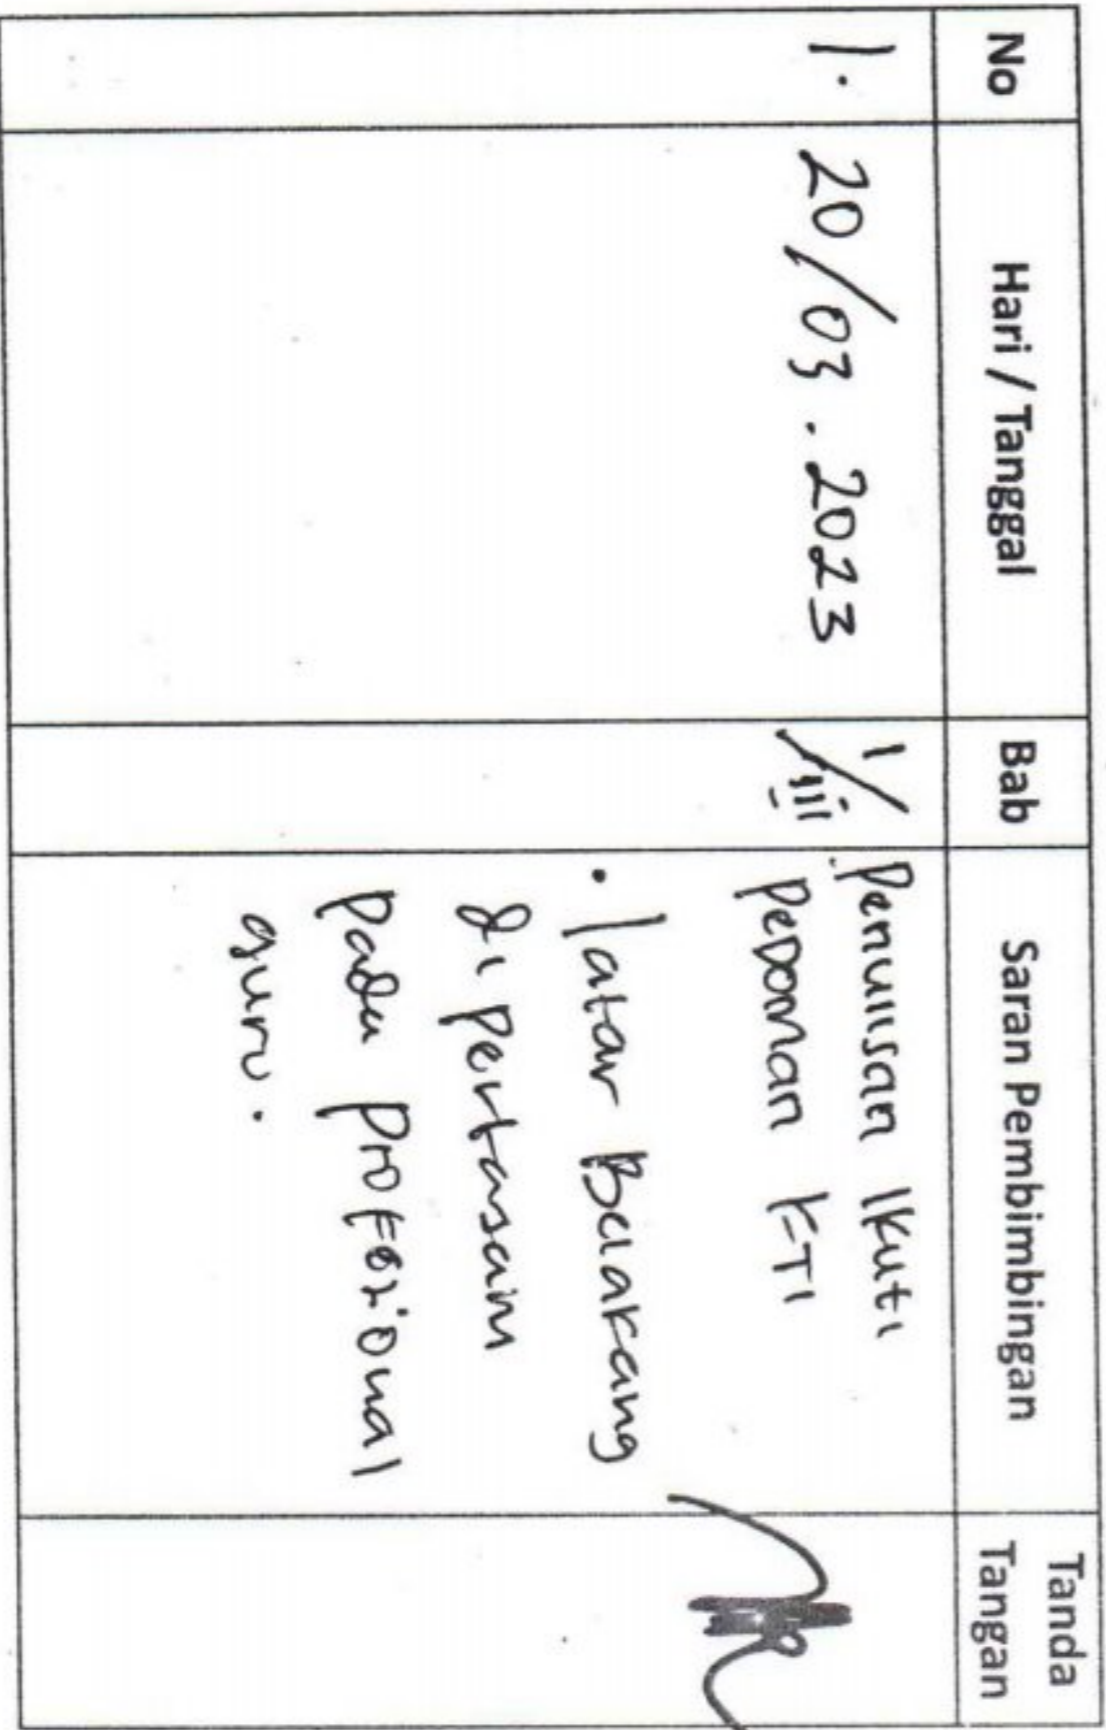 No Hari / Tanggal Bab Saran Pembimbingan Tanda Tangan
1. 20/03.2023 1/iii Penulisan Ikuti
Pedoman KTI
• latar Belakang
di pertasain
pada profesional
guru.